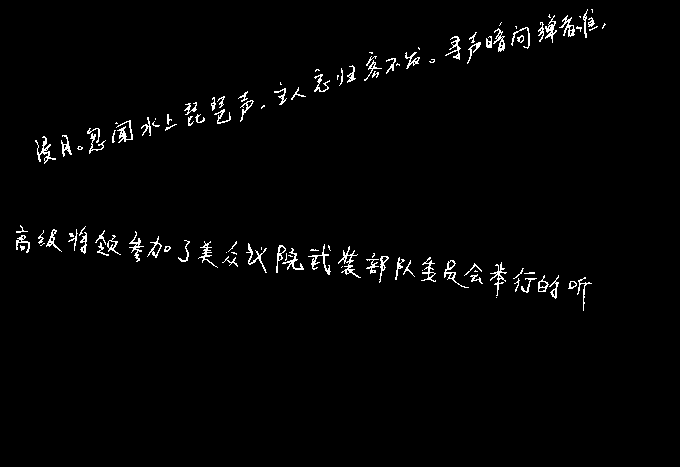 浸月。忽闻水上琵琶声，主人忘归客不发。寻声暗问弹者谁，
高级将领参加了美众议院武装部队委员会举行的听